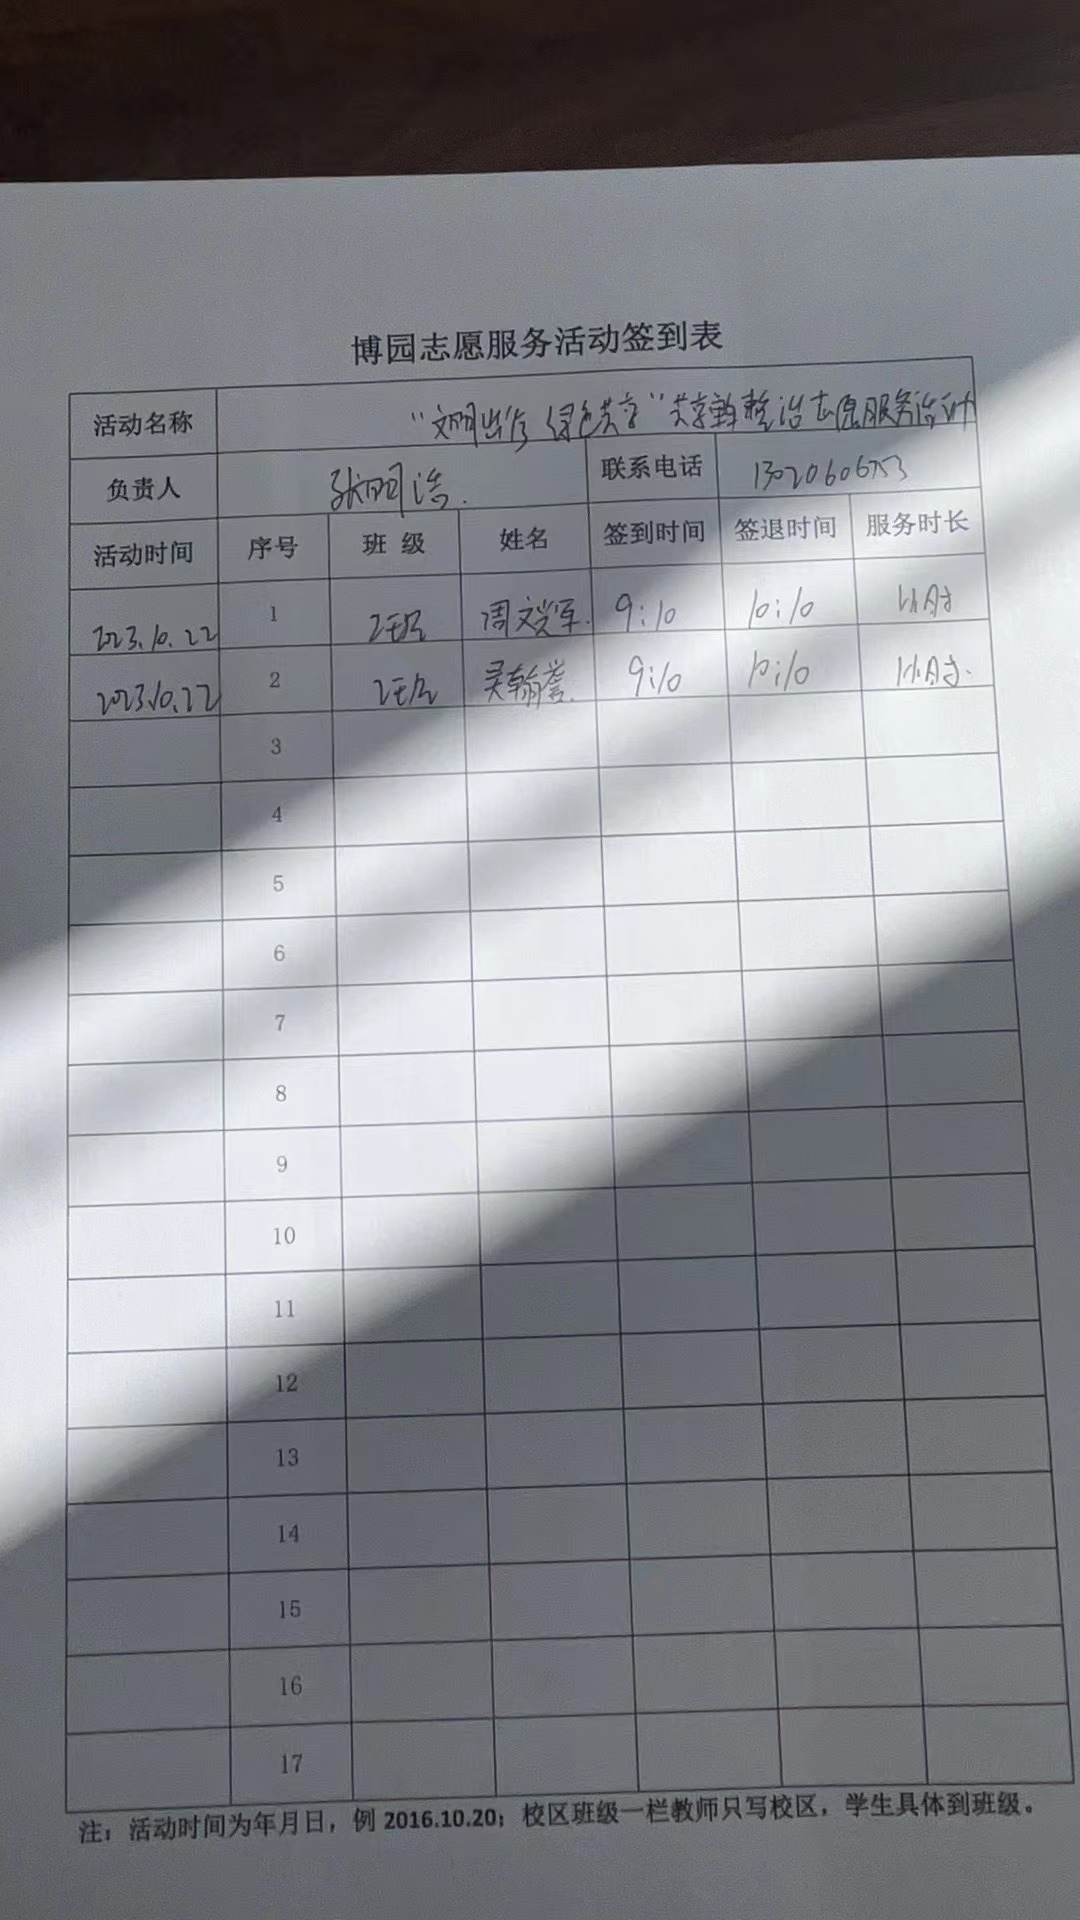 博园志愿服务活动签到表
活动名称 “文明出行 绿色共享”共享单车整治志愿服务活动
负责人 张明浩. 联系电话
活动时间 序号 班 级 姓名 签到时间 签退时间 服务时长
2023.10.22 1 2班 周文军. 9:10 10:10 1小时
2023.10.22 2 2班 吴翰誉. 9:10 10:10 1小时.
3
4
5
6
7
8
9
10
11
12
13
14
15
16
17
注：活动时间为年月日，例 2016.10.20；校区班级一栏教师只写校区，学生具体到班级。